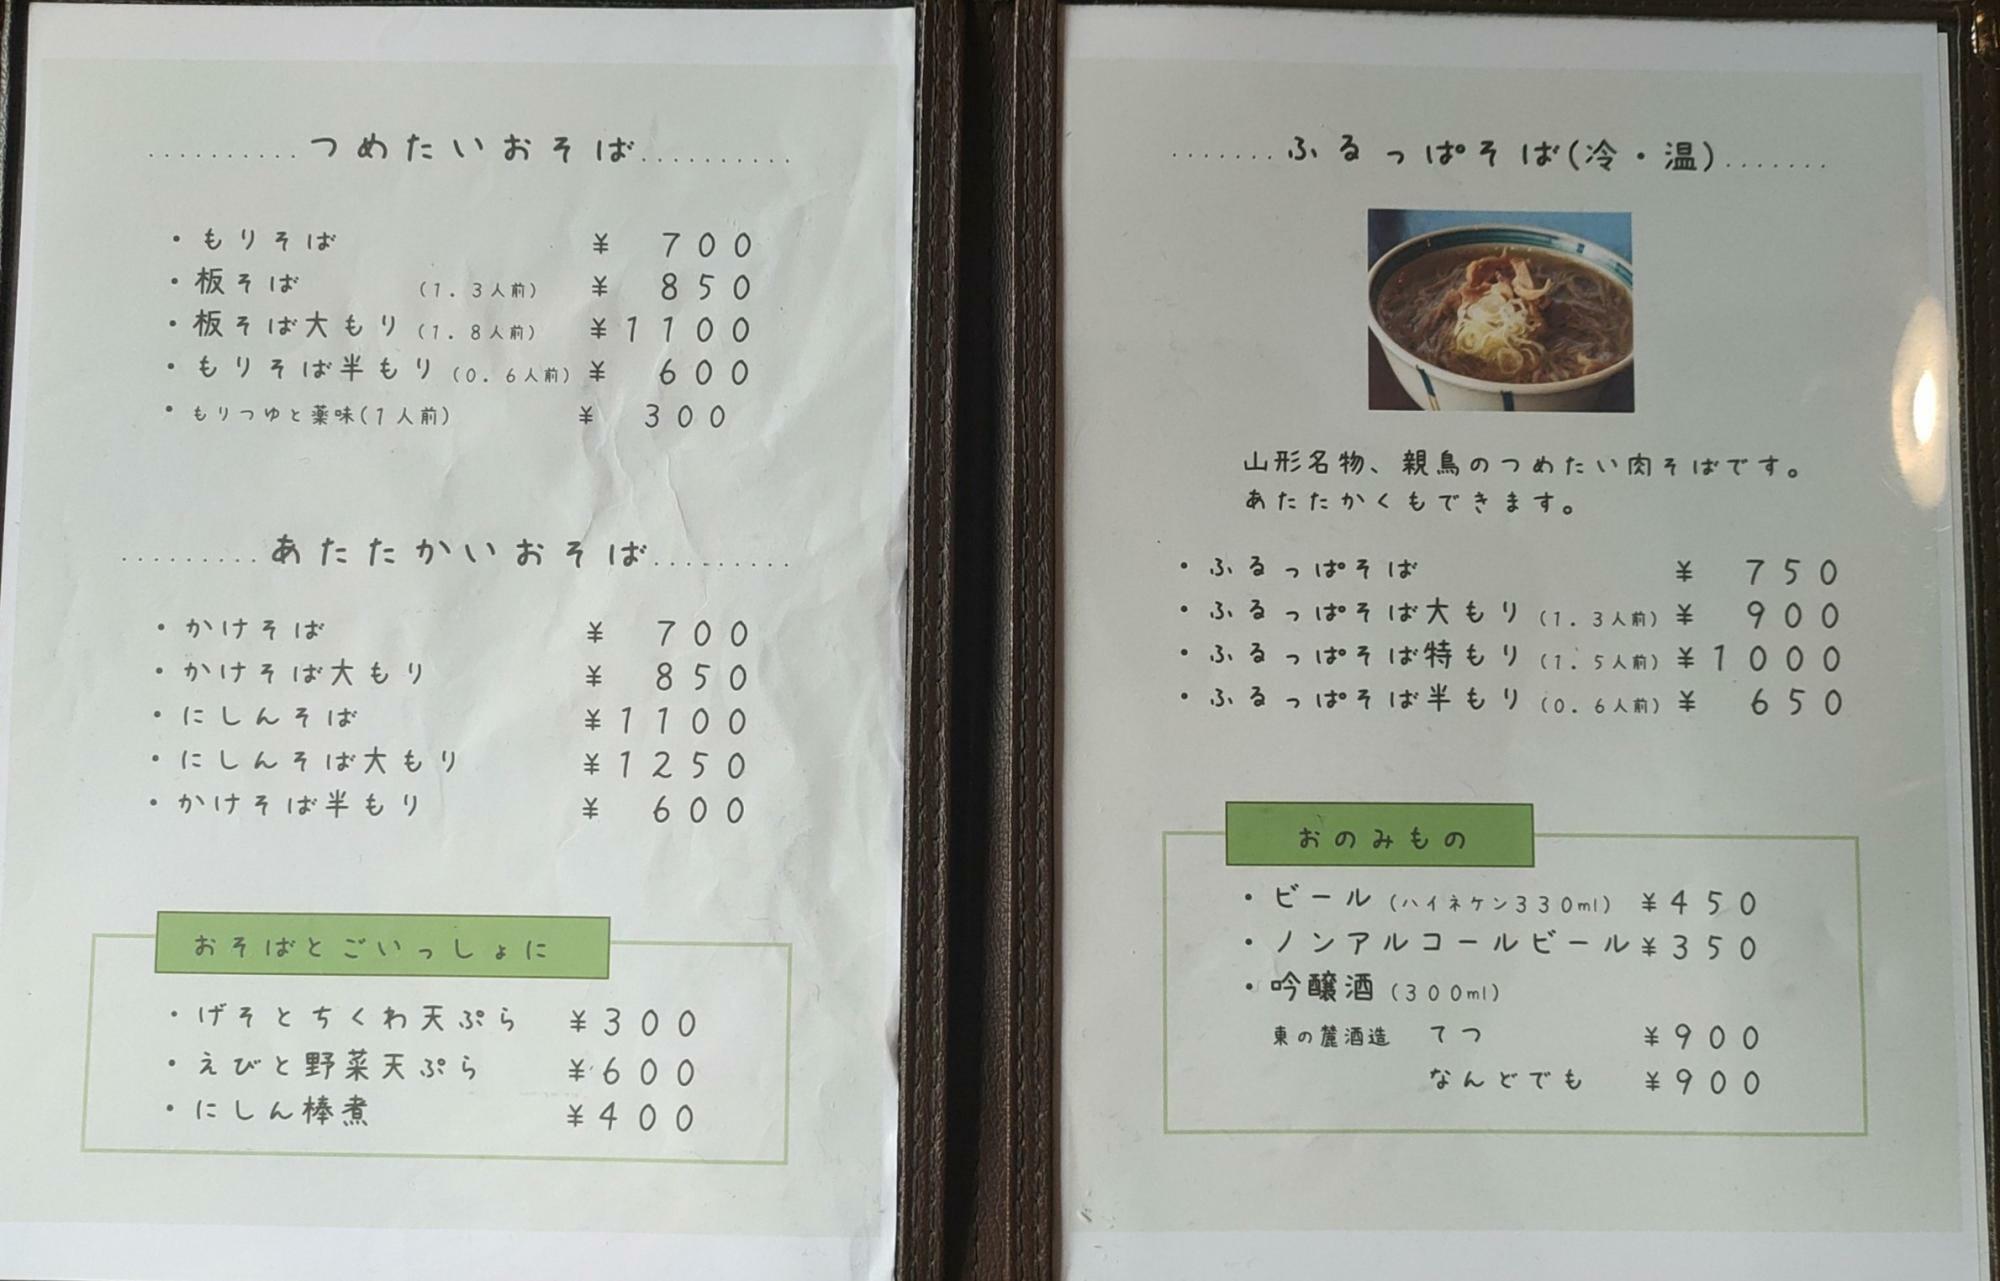 つめたいおそば
・もりそば ¥ 700
・板そば (1.3人前) ¥ 850
・板そば大もり (1.8人前) ¥1100
・もりそば半もり (0.6人前) ¥ 600
・もりつゆと薬味(1人前) ¥ 300
あたたかいおそば
・かけそば ¥ 700
・かけそば大もり ¥ 850
・にしんそば ¥1100
・にしんそば大もり ¥1250
・かけそば半もり ¥ 600
おそばとごいっしょに
・げそとちくわ天ぷら ¥300
・えびと野菜天ぷら ¥600
・にしん棒煮 ¥400
ふるっぱそば(冷・温)
山形名物、親鳥のつめたい肉そばです。
あたたかくもできます。
・ふるっぱそば ¥ 750
・ふるっぱそば大もり (1.3人前) ¥ 900
・ふるっぱそば特もり (1.5人前) ¥1000
・ふるっぱそば半もり (0.6人前) ¥ 650
おのみもの
・ビール (ハイネケン330ml) ¥450
・ノンアルコールビール ¥350
・吟醸酒 (300ml)
東の麓酒造 てつ ¥900
なんどでも ¥900